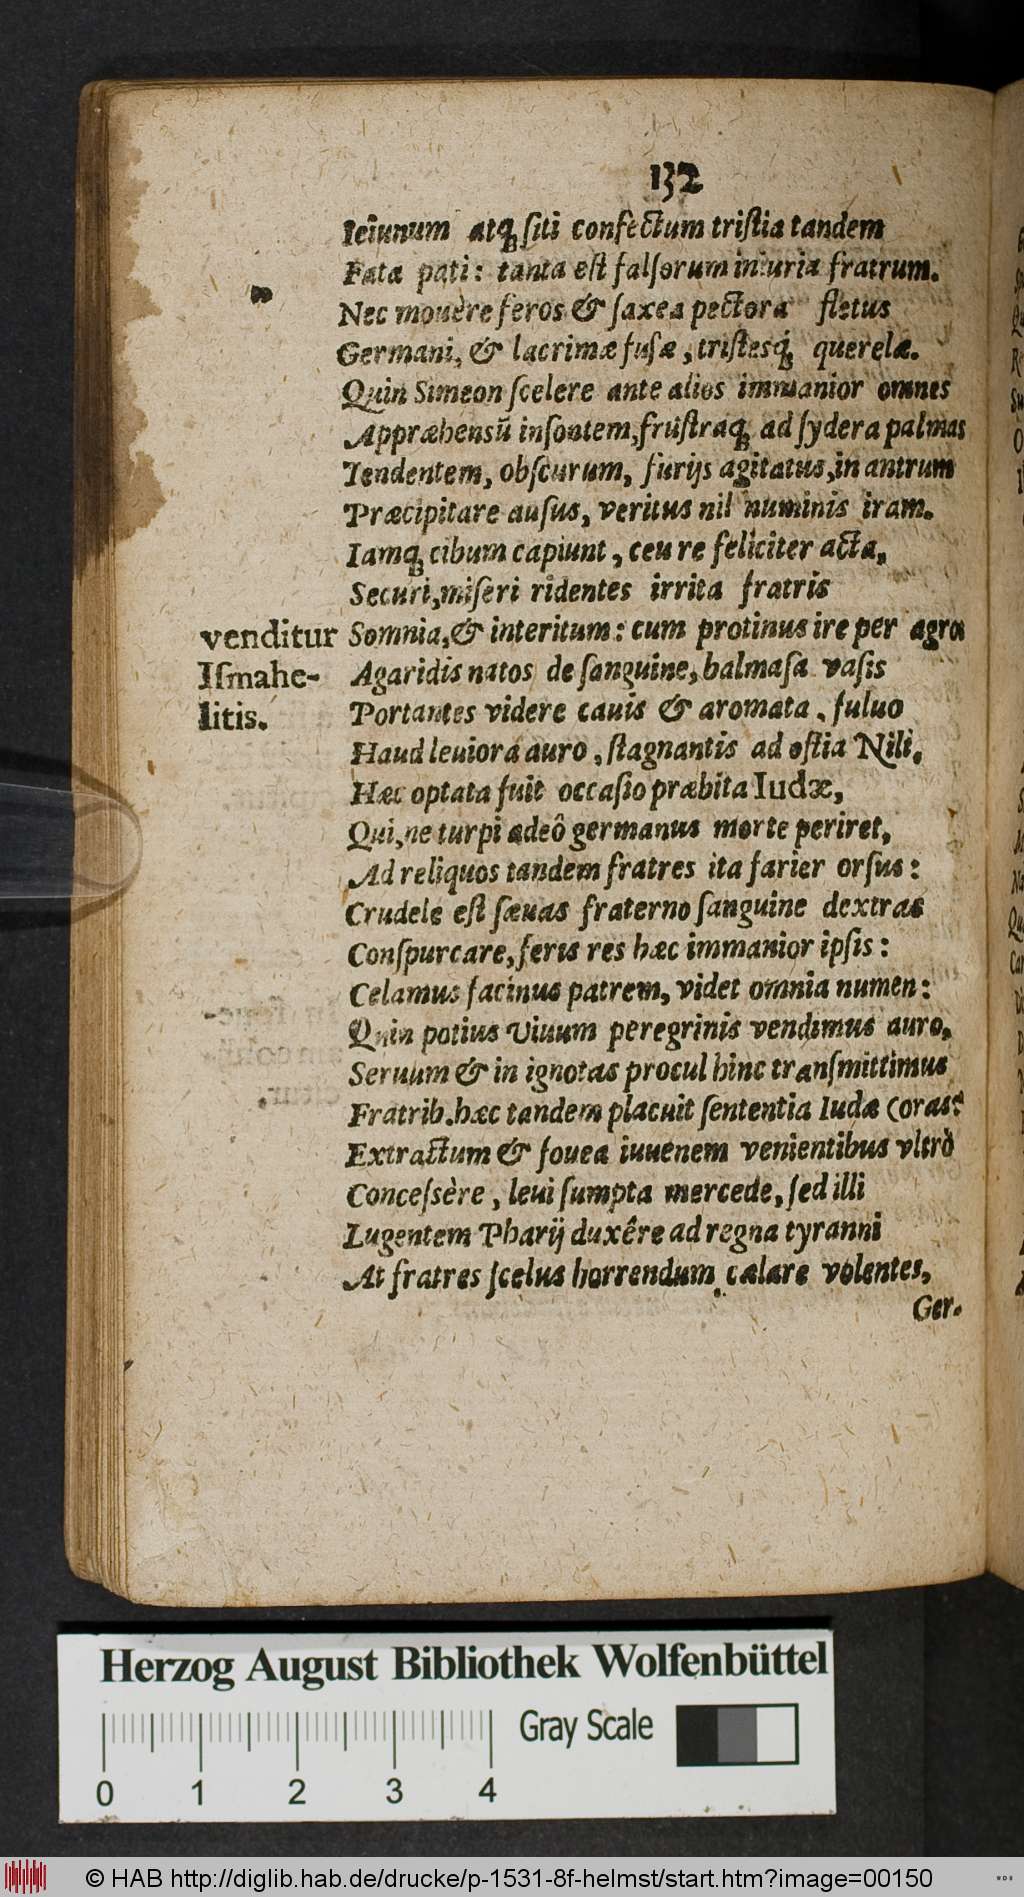 132
Ieiunum atq́; ſiti confectum triſtia tandem
Fata pati: tanta eſt falſorum iniuria fratrum.
Nec mouêre feros & ſaxea pectora fletus
Germani, & lacrimæ fuſæ, triſtesq́; querelæ.
Quin Simeon ſcelere ante alios immanior omnes
Appræhensũ inſontem, fruſtraq; ad ſydera palmas
Tendentem, obſcurum, furijs agitatus, in antrum
Præcipitare auſus, veritus nil numinis iram.
Iamq; cibum capiunt, ceu re feliciter acta,
Securi, miſeri ridentes irrita fratris
venditur Iſmahe-
litis.
Somnia, & interitum: cum protinus ire per agros
Agaridis natos de ſanguine, balmaſa vaſis
Portantes videre cauis & aromata, fuluo
Haud leuiora auro, ſtagnantis ad oſtia Nili.
Hæc optata fuit occaſio præbita Iudæ,
Qui, ne turpi adeô germanus morte periret,
Ad reliquos tandem fratres ita farier orſus:
Crudele eſt ſæuas fraterno ſanguine dextras
Conſpurcare, feris res hæc immanior ipſis:
Celamus facinus patrem, videt omnia numen:
Quin potius viuum peregrinis vendimus auro,
Seruum & in ignotas procul hinc tranſmittimus oras?
Fratrib. hæc tandem placuit ſententia Iudæ
Extractum & fouea iuuenem venientibus vltrò
Conceſsère, leui ſumpta mercede, ſed illi
Lugentem Pharij duxêre ad regna tyranni
At fratres ſcelus horrendum cælare volentes,
Ger-
Herzog August Bibliothek Wolfenbüttel
0 1 2 3 4
Gray Scale
© HAB http://diglib.hab.de/drucke/p-1531-8f-helmst/start.htm?image=00150